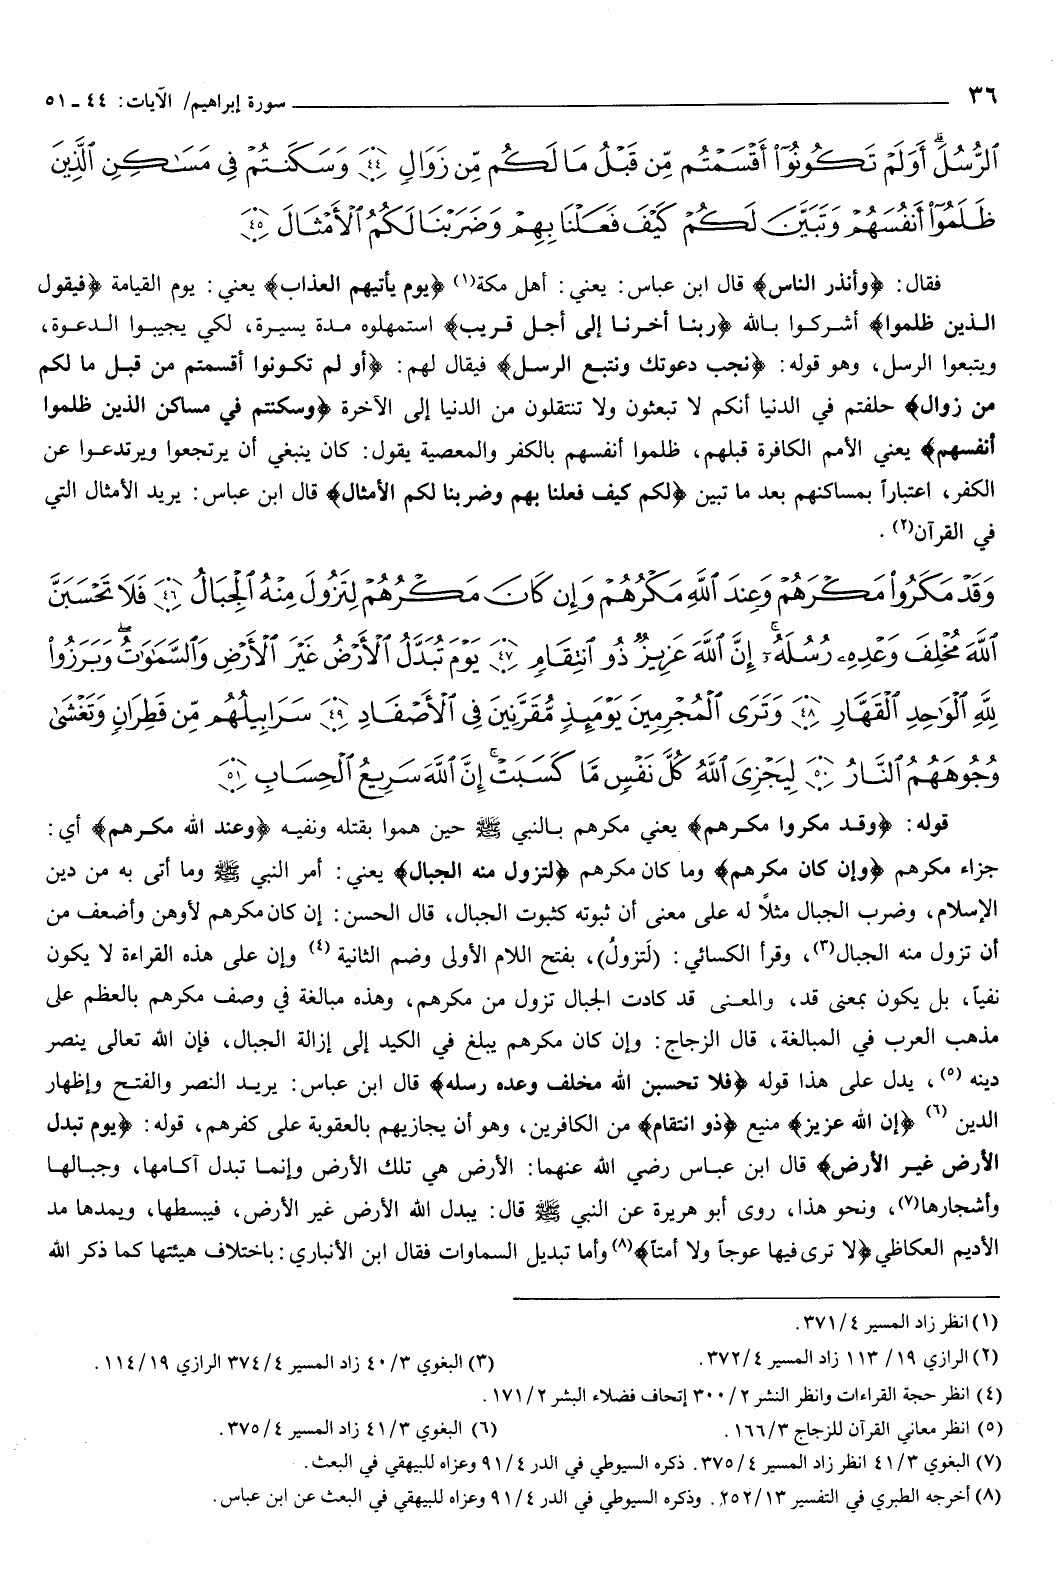 ٣٦ سورة إبراهيم/ الآيات: ٤٤ ـ ٥١
ٱلرُّسُلَ ۗ أَوَلَمْ تَكُونُوٓا۟ أَقْسَمْتُم مِّن قَبْلُ مَا لَكُم مِّن زَوَالٍ ﴿٤٤﴾ وَسَكَنتُمْ فِى مَسَـٰكِنِ ٱلَّذِينَ
ظَلَمُوٓا۟ أَنفُسَهُمْ وَتَبَيَّنَ لَكُمْ كَيْفَ فَعَلْنَا بِهِمْ وَضَرَبْنَا لَكُمُ ٱلْأَمْثَالَ ﴿٤٥﴾
فقال: ﴿وأنذر الناس﴾ قال ابن عباس: يعني: أهل مكة(١) ﴿يوم يأتيهم العذاب﴾ يعني: يوم القيامة ﴿فيقول
الذين ظلموا﴾ أشركوا بالله ﴿ربنا أخرنا إلى أجل قريب﴾ استمهلوه مدة يسيرة، لكي يجيبوا الدعوة،
ويتبعوا الرسل، وهو قوله: ﴿نجب دعوتك ونتبع الرسل﴾ فيقال لهم: ﴿أو لم تكونوا أقسمتم من قبل ما لكم
من زوال﴾ حلفتم في الدنيا أنكم لا تبعثون ولا تنتقلون من الدنيا إلى الآخرة ﴿وسكنتم في مساكن الذين ظلموا
أنفسهم﴾ يعني الأمم الكافرة قبلهم، ظلموا أنفسهم بالكفر والمعصية يقول: كان ينبغي أن يرتجعوا ويرتدعوا عن
الكفر، اعتباراً بمساكنهم بعد ما تبين ﴿لكم كيف فعلنا بهم وضربنا لكم الأمثال﴾ قال ابن عباس: يريد الأمثال التي
في القرآن(٢).
وَقَدْ مَكَرُوا۟ مَكْرَهُمْ وَعِندَ ٱللَّهِ مَكْرُهُمْ وَإِن كَانَ مَكْرُهُمْ لِتَزُولَ مِنْهُ ٱلْجِبَالُ ﴿٤٦﴾ فَلَا تَحْسَبَنَّ
ٱللَّهَ مُخْلِفَ وَعْدِهِۦ رُسُلَهُۥٓ ۚ إِنَّ ٱللَّهَ عَزِيزٌ ذُو ٱنتِقَامٍ ﴿٤٧﴾ يَوْمَ تُبَدَّلُ ٱلْأَرْضُ غَيْرَ ٱلْأَرْضِ وَٱلسَّمَـٰوَٰتُ ۖ وَبَرَزُوا۟
لِلَّهِ ٱلْوَٰحِدِ ٱلْقَهَّارِ ﴿٤٨﴾ وَتَرَى ٱلْمُجْرِمِينَ يَوْمَئِذٍ مُّقَرَّنِينَ فِى ٱلْأَصْفَادِ ﴿٤٩﴾ سَرَابِيلُهُم مِّن قَطِرَانٍ وَتَغْشَىٰ
وُجُوهَهُمُ ٱلنَّارُ ﴿٥٠﴾ لِيَجْزِىَ ٱللَّهُ كُلَّ نَفْسٍ مَّا كَسَبَتْ ۚ إِنَّ ٱللَّهَ سَرِيعُ ٱلْحِسَابِ ﴿٥١﴾
قوله: ﴿وقد مكروا مكرهم﴾ يعني مكرهم بالنبي ﷺ حين هموا بقتله ونفيه ﴿وعند الله مكرهم﴾ أي:
جزاء مكرهم ﴿وإن كان مكرهم﴾ وما كان مكرهم ﴿لتزول منه الجبال﴾ يعني: أمر النبي ﷺ وما أتى به من دين
الإسلام، وضرب الجبال مثلاً له على معنى أن ثبوته كثبوت الجبال، قال الحسن: إن كان مكرهم لأوهن وأضعف من
أن تزول منه الجبال(٣)، وقرأ الكسائي: (لَتزولُ)، بفتح اللام الأولى وضم الثانية (٤) وإن على هذه القراءة لا يكون
نفياً، بل يكون بمعنى قد، والمعنى قد كادت الجبال تزول من مكرهم، وهذه مبالغة في وصف مكرهم بالعظم على
مذهب العرب في المبالغة، قال الزجاج: وإن كان مكرهم يبلغ في الكيد إلى إزالة الجبال، فإن الله تعالى ينصر
دينه (٥)، يدل على هذا قوله ﴿فلا تحسبن الله مخلف وعده رسله﴾ قال ابن عباس: يريد النصر والفتح وإظهار
الدين (٦) ﴿إن الله عزيز﴾ منيع ﴿ذو انتقام﴾ من الكافرين، وهو أن يجازيهم بالعقوبة على كفرهم، قوله: ﴿يوم تبدل
الأرض غير الأرض﴾ قال ابن عباس رضي الله عنهما: الأرض هي تلك الأرض وإنما تبدل آكامها، وجبالها
وأشجارها(٧)، ونحو هذا، روى أبو هريرة عن النبي ﷺ قال: يبدل الله الأرض غير الأرض، فيبسطها، ويمدها مد
الأديم العكاظي ﴿لا ترى فيها عوجاً ولا أمتاً﴾(٨) وأما تبديل السماوات فقال ابن الأنباري: باختلاف هيئتها كما ذكر الله
(١) انظر زاد المسير ٣٧١/٤.
(٢) الرازي ١٩/ ١١٣ زاد المسير ٣٧٢/٤. (٣) البغوي ٤٠/٣ زاد المسير ٣٧٤/٤ الرازي ١١٤/١٩.
(٤) انظر حجة القراءات وانظر النشر ٣٠٠/٢ إتحاف فضلاء البشر ١٧١/٢.
(٥) انظر معاني القرآن للزجاج ١٦٦/٣. (٦) البغوي ٤١/٣ زاد المسير ٣٧٥/٤.
(٧) البغوي ٤١/٣ انظر زاد المسير ٣٧٥/٤. ذكره السيوطي في الدر ٩١/٤ وعزاه للبيهقي في البعث.
(٨) أخرجه الطبري في التفسير ٢٥٢/١٣. وذكره السيوطي في الدر ٩١/٤ وعزاه للبيهقي في البعث عن ابن عباس.